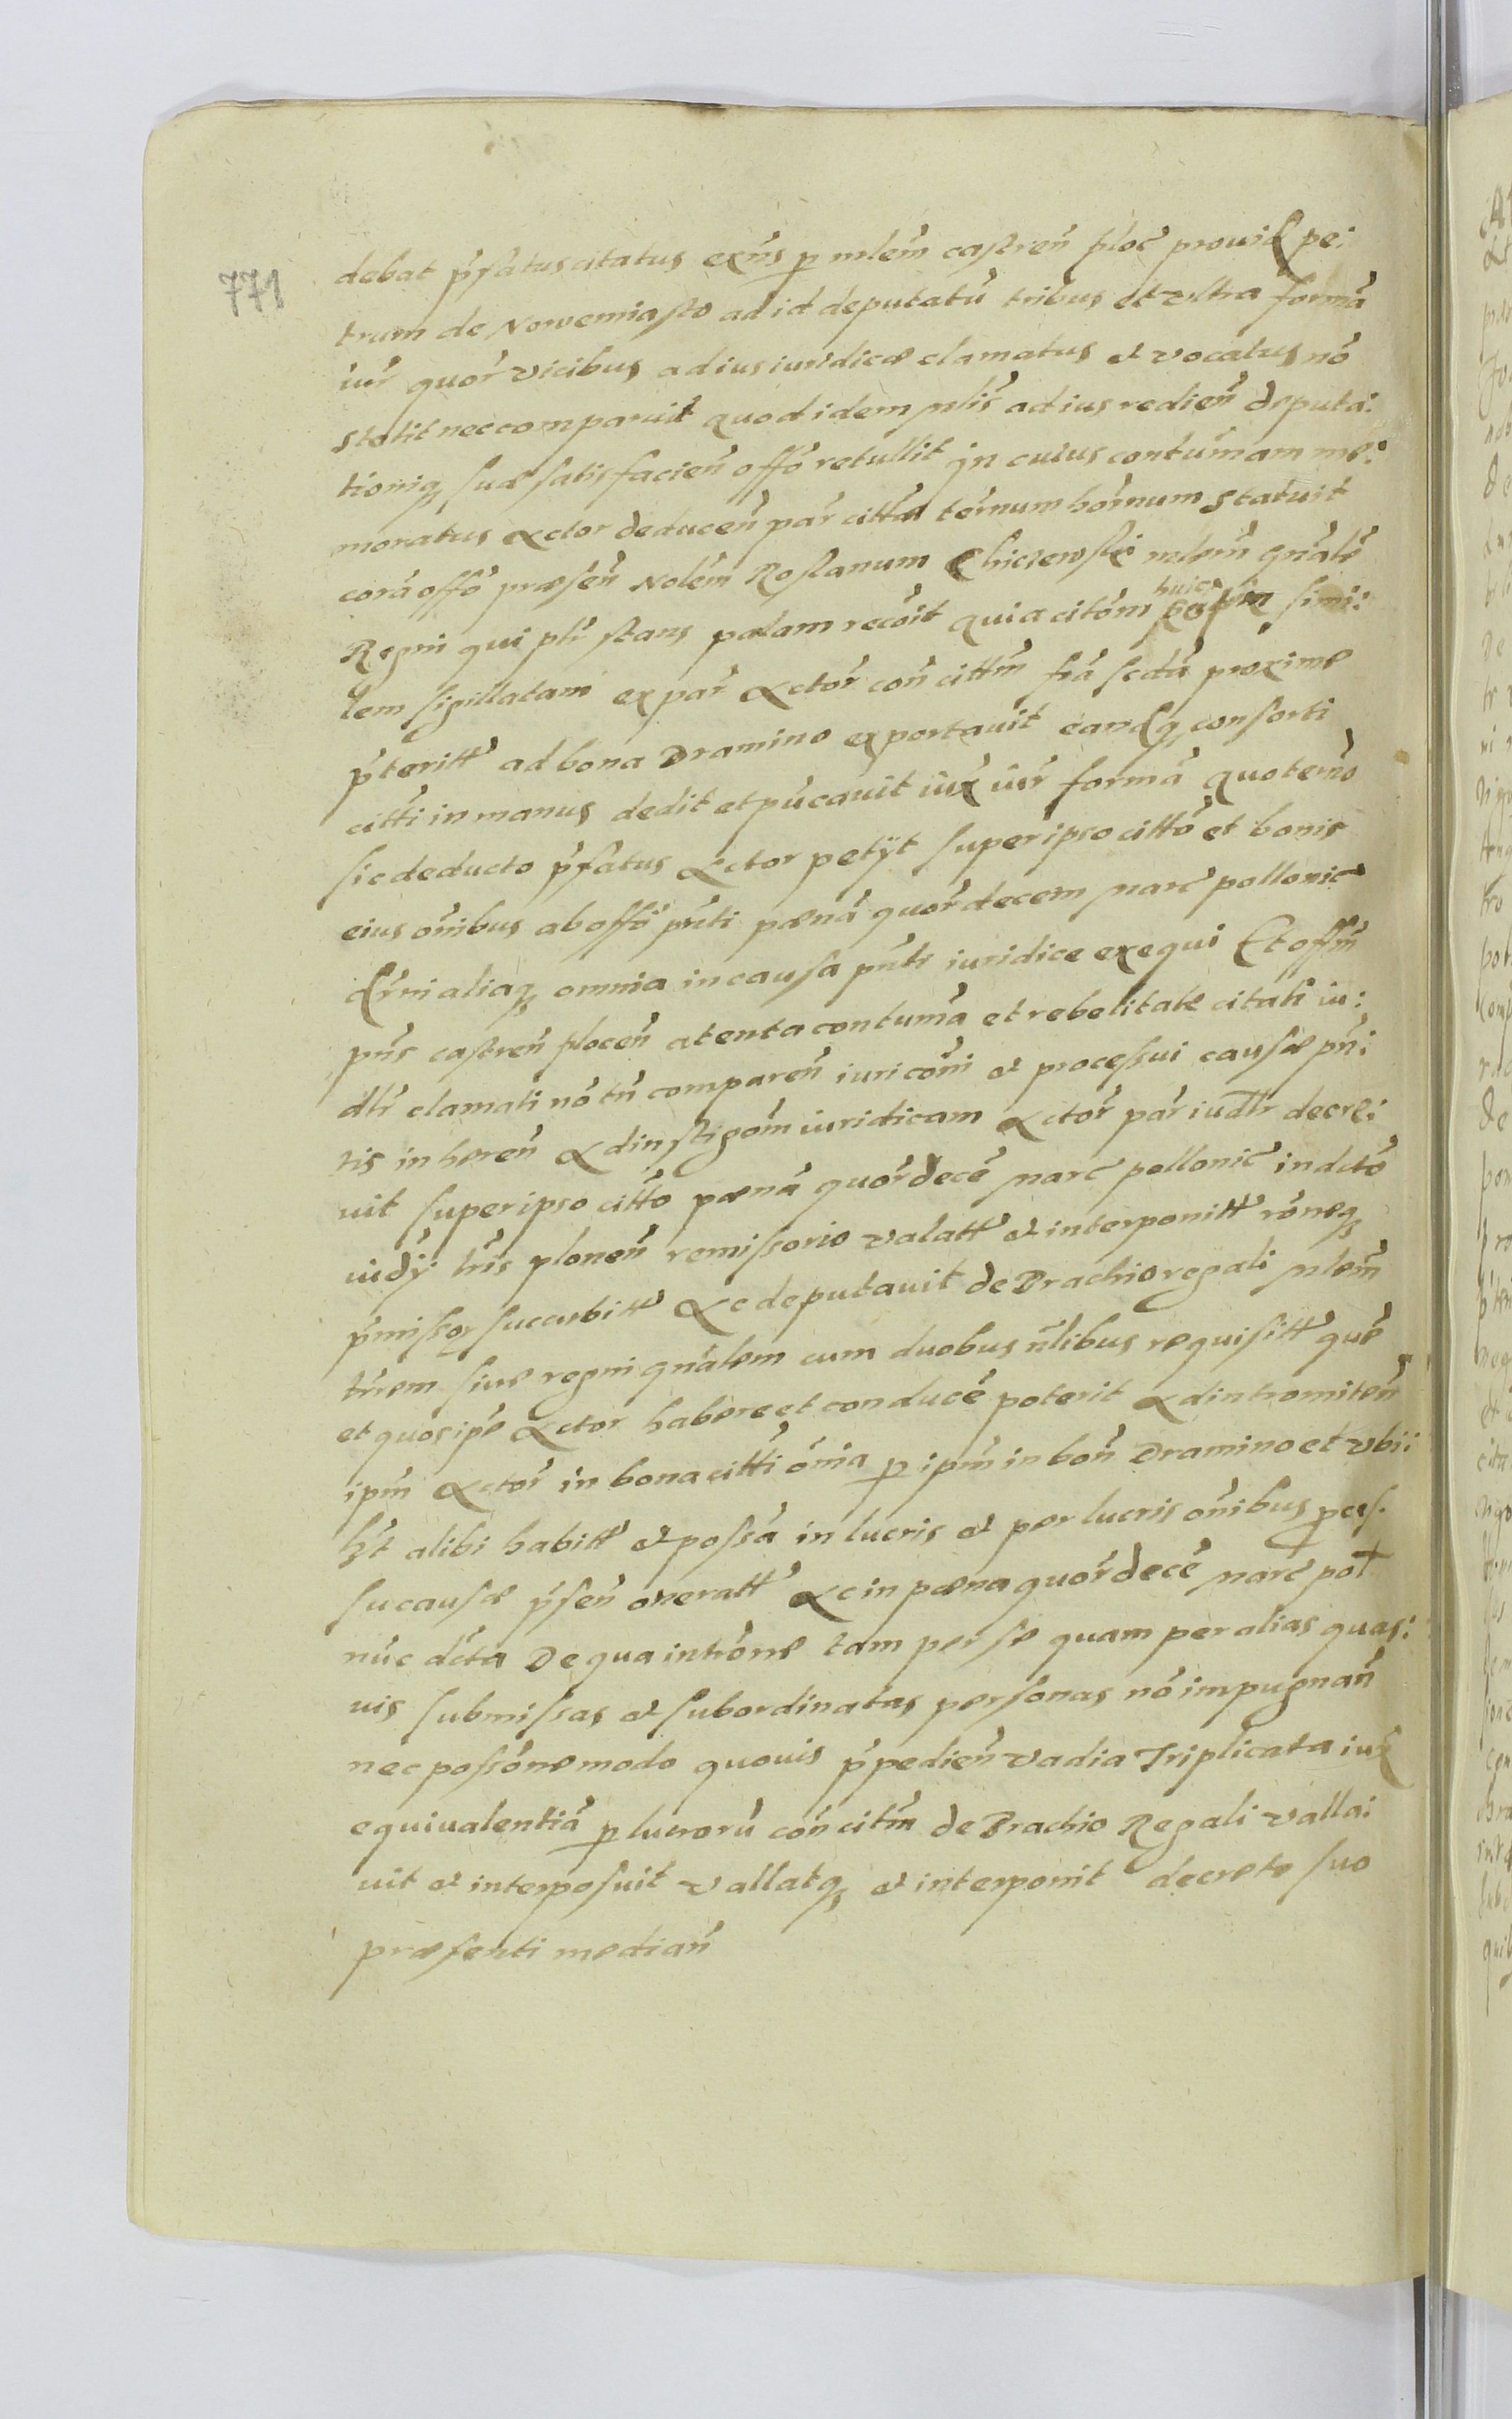 771
debat p̄fatus citatus exn̄s p mlem̄ castren̄ ploc̄ provid pe:
trum de Nowemiasto ad id deputatū tribus et vltra formā
iur̄ quor̄ vicibus ad ius iuridicæ clamatus et vocatus nō
stetit nec comparuit quod idem mlis̄ ad ius redien̄ deputa:
tioniq suæ satisfacien̄ offō retullit in cuius contumam me:
moratus Actor deducen̄ par̄ citta ternum hor̄num statuit
corā offō præsen̄ Nolēm Roslanum Chiczewski mlem̄ gn̄alē
Regni qui pli stans palam recōit quia citōm huic simi:
lem sigillatam ex par̄ Actor̄ con̄ cittm̄ fr̄a scdā proxime
p̄teritt ad bona Dramino exportauit eandq consorti
citti in manus dedit et pucauit iux iur̄ formā quo termō
sic deducto p̄fatus Actor petÿt super ipso cittō et bonis
eius om̄ibus ab offō pn̄ti pænā quor̄decem marc̄ pollonic
aliaq omnia in causa pn̄ti iuridice exequi Et offm̄
pn̄s castren̄ plocen̄ atenta contumā et rebelitate citati iu:
dlr̄ clamati nō tn̄ comparen̄ iuri com̄i et processui causæ pn̄:
tis inheren̄ Ad instigōm iuridicam Actor̄ par̄ iudlr̄ decre:
uit super ipso cittō pænā quor̄decē marc̄ pollonic̄ in dctō
iudÿ tr̄is plonen̄ remissorio valatt et interponitt rōneq
p̄missor succubitt Ac deputauit de Brachio regali mlem̄
tr̄rem siue regni gn̄alem cum duobus nlibus requisitt quē
et quos ip̄e Actor habere et conducē poterit Ad intromiten̄
ipm̄ Actor̄ in bona citti ōnia p ipm̄ in bon̄ Dramino et vbi:
lƺt alibi habitt et possa in lucris et per lucris ōnibus
su causæ p̄sen̄ oneratt Ac in pæna quor̄decē marc̄ pol
nūc dcta De qua introm̄e tam per se quam per alias quas:
uis submissas et subordinatas personas nō impugnan̄
nec possōne modo quouis p̄pedien̄ vadia Triplicata iux
equiualentiā p lucrorū con̄ citm̄ de Brachio Regali valla:
uit et interposuit vallatq et interponit decreto suo
præsenti median̄